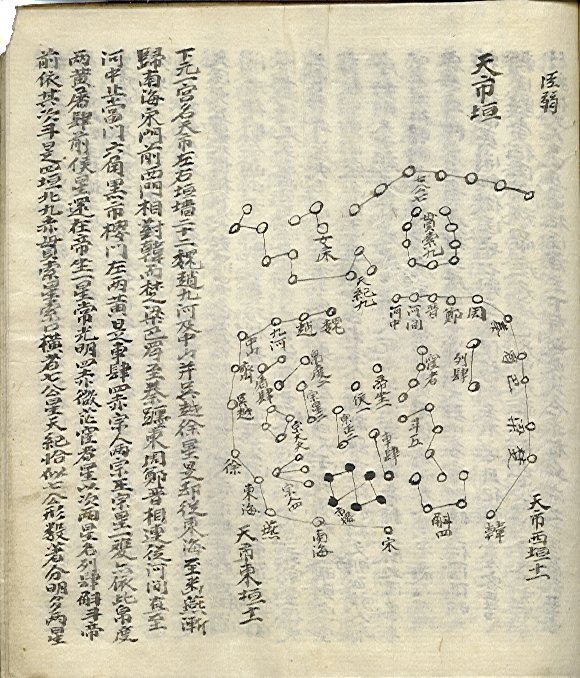 臣弱
天市垣
七公七
貫索九
女床
天紀九
河中
河間
晉
鄭
周
秦
蜀
巴
梁
楚
韓
魏
趙
九河
中山
齊
吳越
徐
東海
燕
南海
宋
列肆
宦者
斗五
斛四
帝坐一
侯一
帛度二
屠肆
宗星二
宗正二
宗人四
車肆
市樓
天市西垣十一
天市東垣十一
下元一宮名天市左右垣墻二十二魏趙九河及中山并吳越徐星是却從東海至燕漸
歸南海宋門前西門相對韓而楚之梁巴蜀至秦疆東周鄭晉相連從河間直至
河中止當門六角黑市樓門左兩黃是車肆四赤宗人兩宗正宗星一雙亦依此帛度
兩黃屠肆前侯星還在帝坐一星常光明四赤微茫宦者星以次兩星名列肆斛斗帝
前依其次斗是四垣北九赤貫索星索口橫者七公星天紀恰似七公形數著分明多兩星